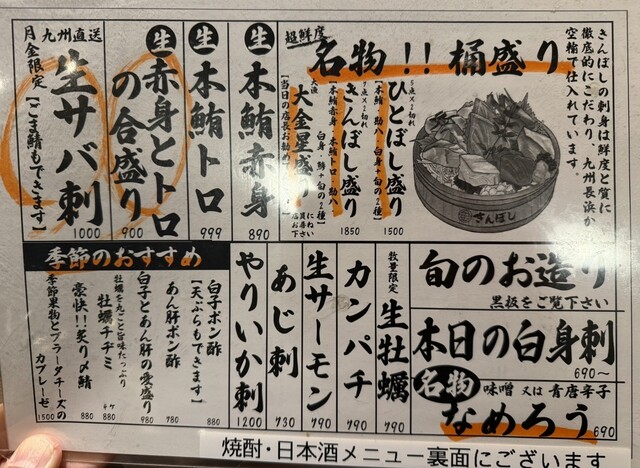 超鮮度
名物!! 桶盛り
きんぼしの刺身は鮮度と質に
徹底的にこだわり、九州長浜から
空輸で仕入れています。
きんぼし
ひとぼし盛り
1500
きんぼし盛り
1850
大金星盛り
【当日の店長お勧め】
生 本鮪赤身
890
生 本鮪トロ
999
生 赤身とトロ
の合盛り
900
九州直送
生サバ刺
1000
月金限定【ごま鯖もできます】
旬のお造り
黒板をご覧下さい
本日の白身刺
690〜
名物 味噌 又は 青唐辛子
なめろう 690
数量限定
生牡蠣
490
カンパチ
790
生サーモン
790
あじ刺
730
やりいか刺
1200
季節のおすすめ
白子ポン酢
【天ぷらもできます】
880
あん肝ポン酢
780
白子とあん肝の愛盛り
980
牡蠣を丸ごと旨味たっぷり
牡蠣チヂミ
880
豪快!!炙り〆鯖
880
季節果物とブラータチーズの
カプレーゼ
1500
焼酎・日本酒メニュー裏面にございます